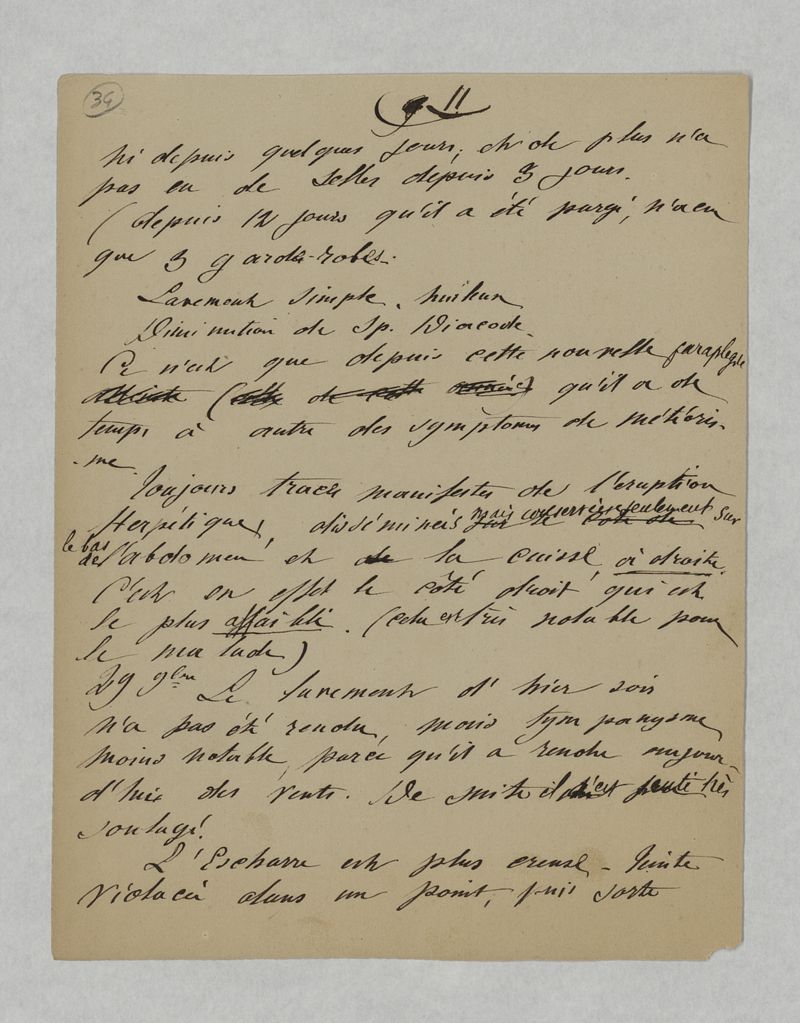 34
11
ni depuis quelques jours; et de plus n'a
pas eu de selles depuis 3 jours.
(depuis 12 jours qu'il a été purgé, n'a eu
que 3 garde-robes.
Lavement simple, huileux
Diminution de Sp. Diacode.
Ce n'est que depuis cette nouvelle paraplégie
atteinte (celle de cette année) qu'il a de
temps à autre des symptomes de météoris-
-me.
Toujours traces manifestes de l'éruption
Herpétique, disséminées mais conservées seulement sur
le bas
de l'abdomen et de la cuisse, à droite.
C'est en effet le côté droit qui est
le plus affaibli. (cela est très notable pour
le malade)
29 9bre Le lavement d'hier soir
n'a pas été rendu, mais tympanysme
moins notable, parce qu'il a rendu aujour-
d'hui des vents. De suite il s'est senti très
soulagé.
L'Escharre est plus creuse - Teinte
violacée dans un point, puis sorte